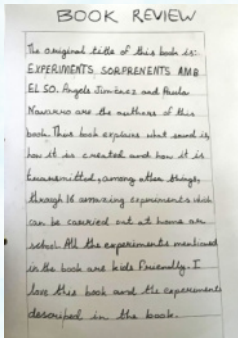 BOOK REVIEW
The original title of this book is:
EXPERIMENTS SORPRENENTS AMB
EL SO. Àngels Jiménez and Paula
Navarro are the authors of this
book. This book explains what sound is,
how it is created and how it is
transmitted, among other things,
through 16 amazing experiments which
can be carried out at home or
school. All the experiments mentioned
in the book are kids friendly. I
love this book and the experiments
described in the book.